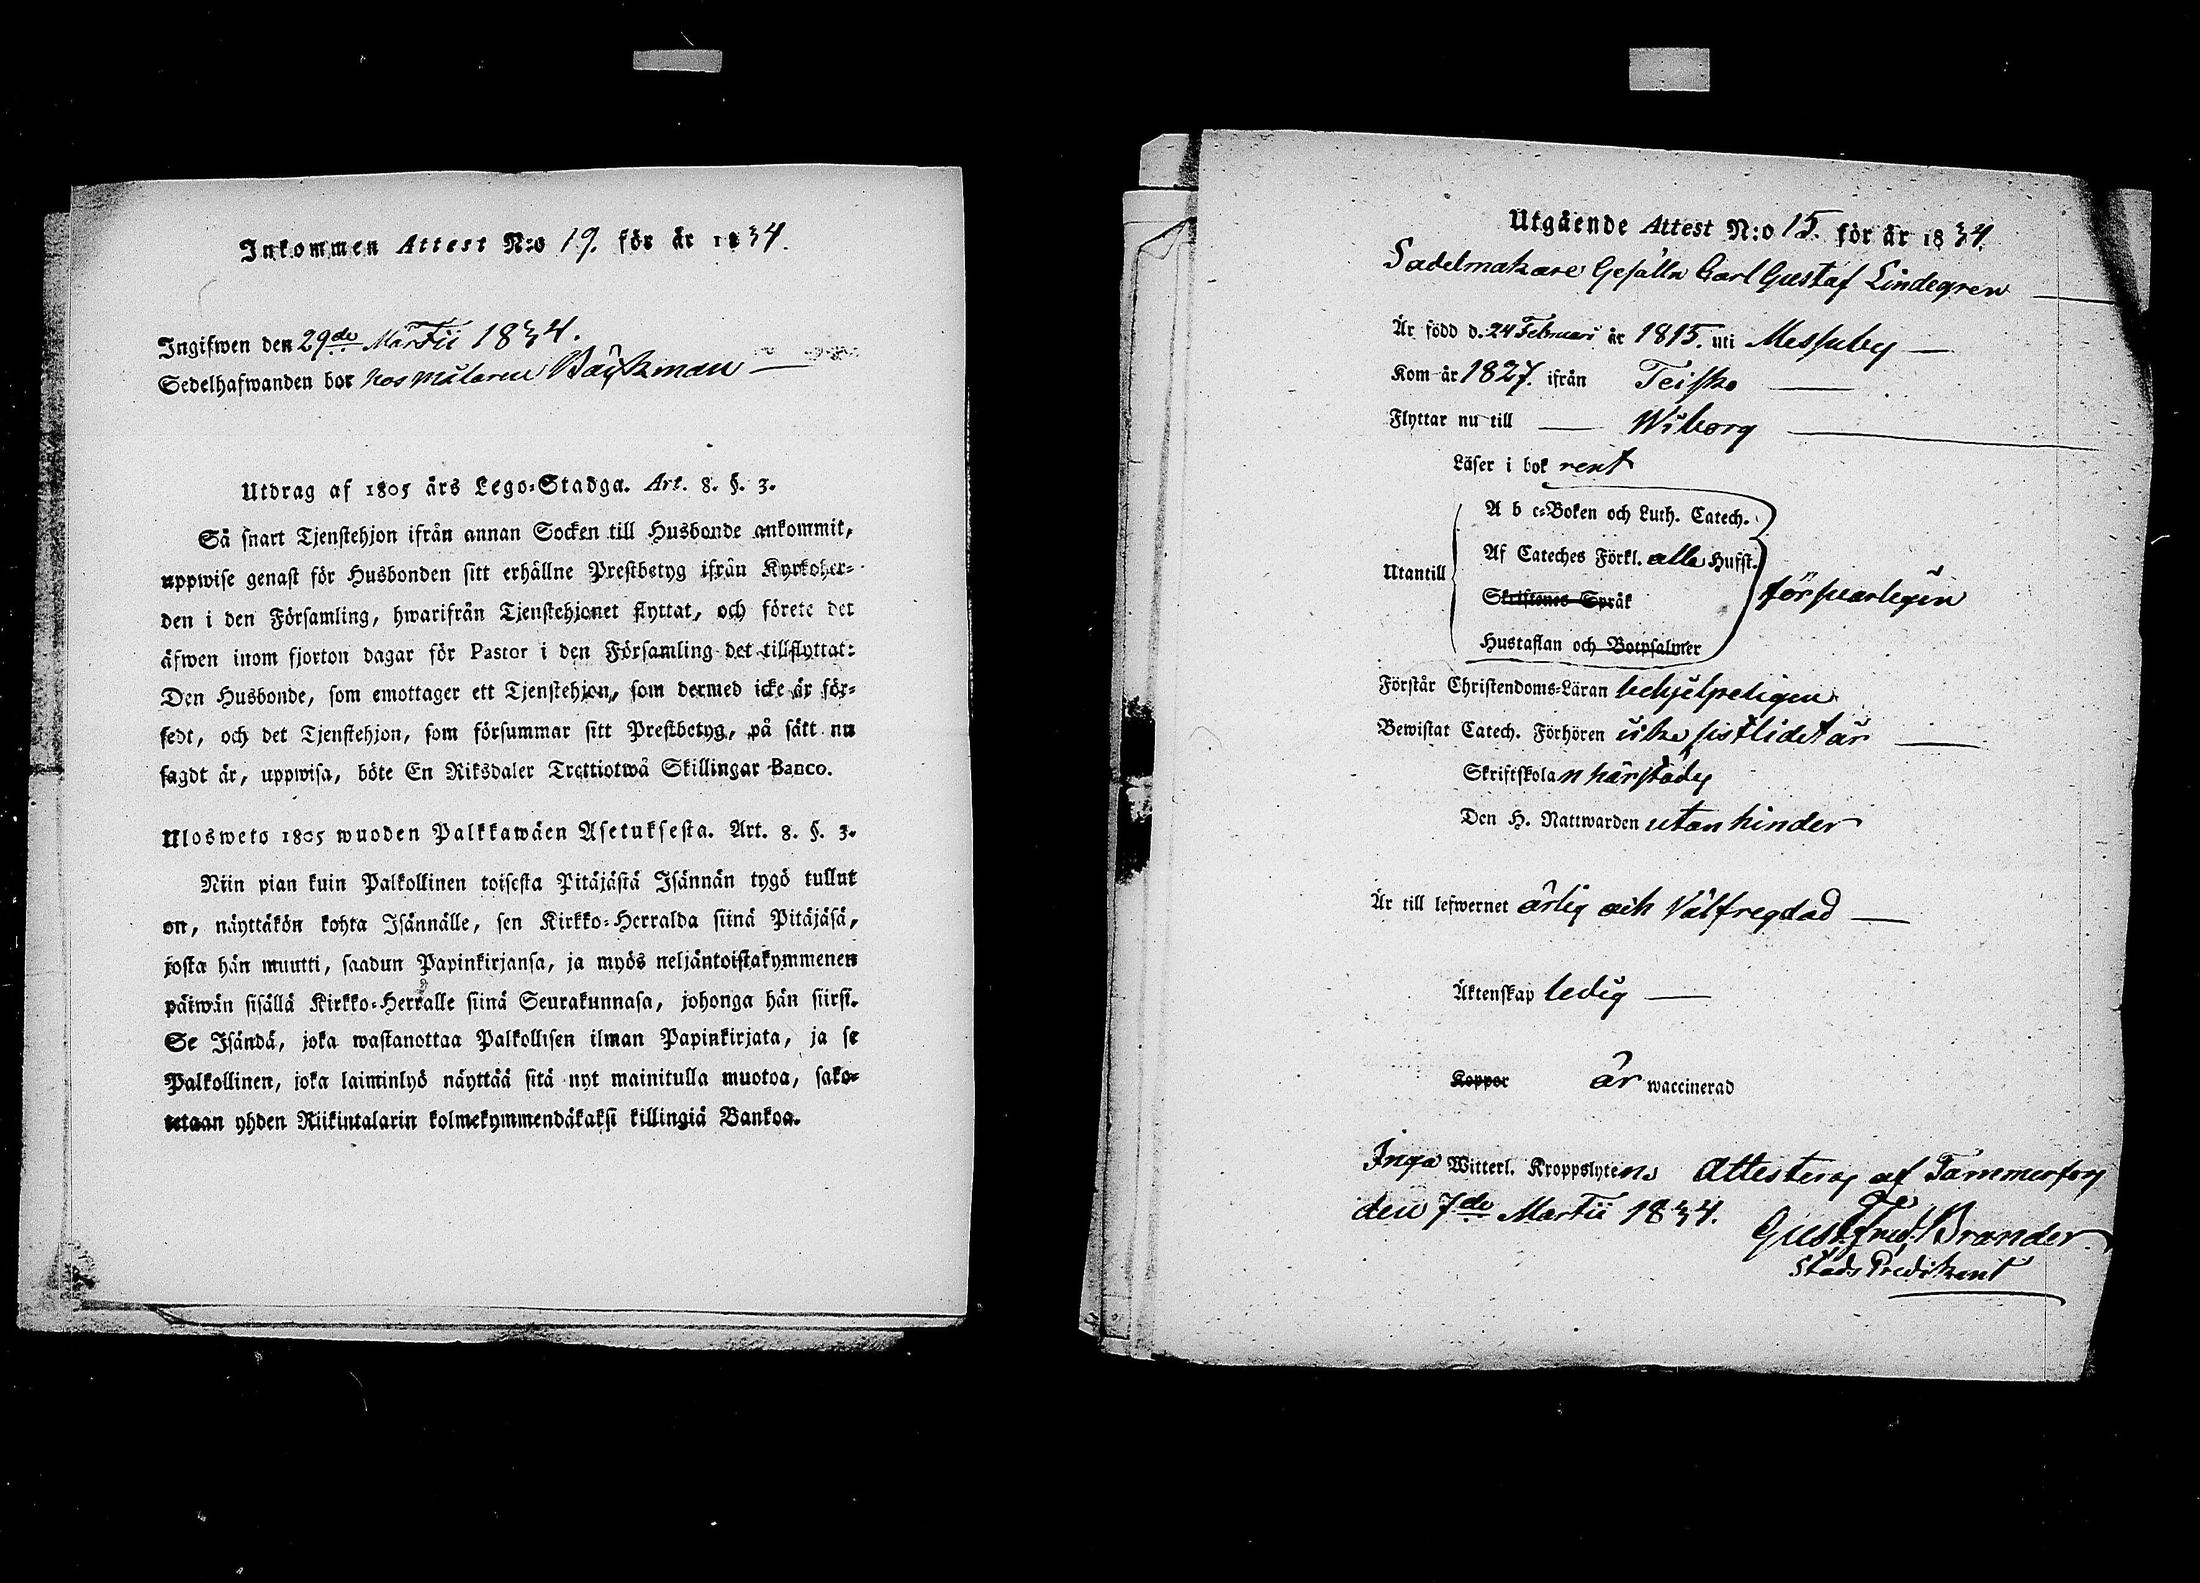 Inkommen Attest N:o 19. för år 1834.
Ingifwen den 29de Martii 1834.
Sedelhafwanden bor hos målaren Bäckman
Utdrag af 1805 års Lego-Stadga. Art. 8. §. 3.
Så snart Tjenstehjon ifrån annan Socken till Husbonde ankommit,
uppwise genast för Husbonden sitt erhållne Prestbetyg ifrån Kyrkoher-
den i den Församling, hwarifrån Tjenstehjonet flyttat, och förete det
äfwen inom fjorton dagar för Pastor i den Församling det tillflyttat:
Den Husbonde, som emottager ett Tjenstehjon, som dermed icke är för-
sedt, och det Tjenstehjon, som försummar sitt Prestbetyg, på sätt nu
sagdt är, uppwisa, böte En Riksdaler Trettiotwå Skillingar Banco.
Ulosweto 1805 wuoden Palkkawäen Asetuksesta. Art. 8. §. 3.
Niin pian kuin Palkollinen toisesta Pitäjästä Isännän tygö tullut
on, näyttäkön kohta Isännälle, sen Kirkko-Herralda siinä Pitäjäsä,
josta hän muutti, saadun Papinkirjansa, ja myös neljäntoistakymmenen
päiwän sisällä Kirkko-Herralle siinä Seurakunnasa, johonga hän siirsi.
Se Isändä, joka wastanottaa Palkollisen ilman Papinkirjata, ja se
Palkollinen, joka laiminlyö näyttää sitä nyt mainitulla muotoa, sako-
tetaan yhden Riikintalarin kolmekymmendäkaksi killingiä Bankoa.
Utgående Attest N:o 15. för år 1834.
Sadelmakare Gesälln Carl Gustaf Lindegren
Är född d. 24 Februari år 1815. uti Messuby
Kom år 1827. ifrån Teisko
Flyttar nu till Wiborg
Läser i bok rent
A b c-Boken och Luth. Catech.
Af Cateches Förkl. alla Hufst.
Utantill
Skriftenes Språk
försvarligen
Hustaflan och Botpsalmer
Förstår Christendoms-Läran behjelpeligen
Bewistat Catech. Förhören icke sistlidet år
Skriftskolan härstädes
Den H. Nattwarden utan hinder
Är till lefwernet ärlig och Välfregdad
Äktenskap ledig
Koppor är waccinerad
Inga Witterl. Kroppslytens Attesteras af Tammerfors
den 7de Martii 1834.
Gust. Fred. Brander
Stads Predikant